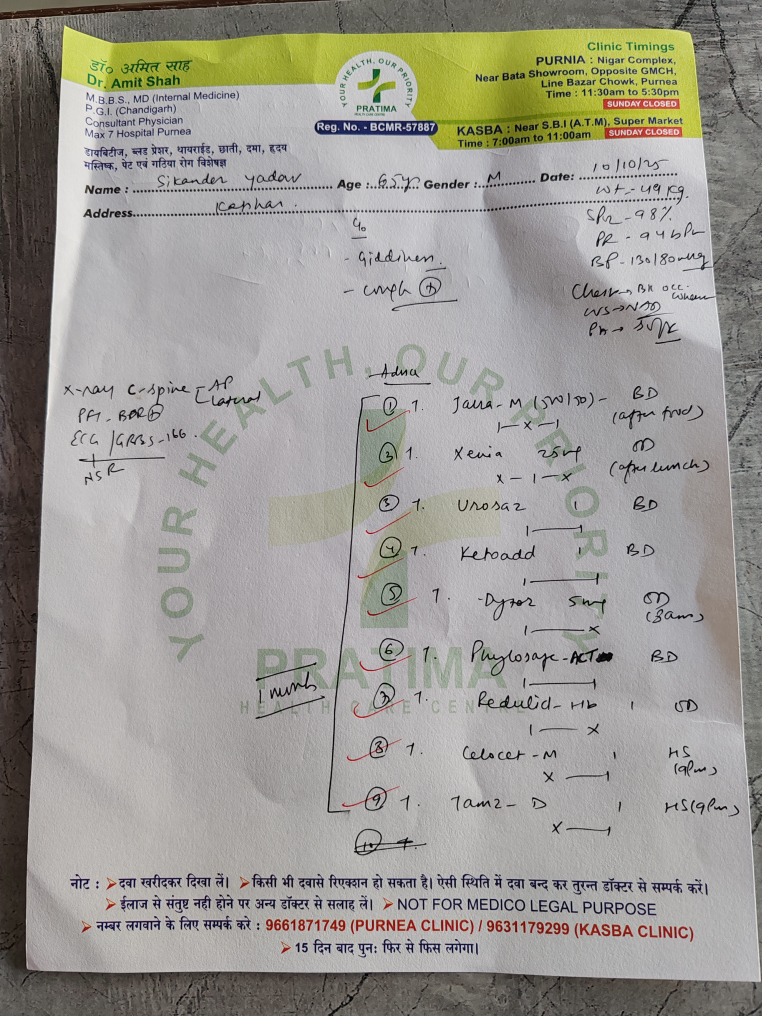 डॉ० अमित साह
Dr. Amit Shah
M.B.B.S., MD (Internal Medicine)
P.G.I. (Chandigarh)
Consultant Physician
Max 7 Hospital Purnea
डायबिटीज, ब्लड प्रेशर, थायराईड, छाती, दमा, हृदय
मस्तिष्क, पेट एवं गठिया रोग विशेषज्ञ
YOUR HEALTH, OUR PRIORITY
PRATIMA
HEALTH CARE CENTRE
Reg. No. - BCMR-57887
Clinic Timings
PURNIA : Nigar Complex,
Near Bata Showroom, Opposite GMCH,
Line Bazar Chowk, Purnea
Time : 11:30am to 5:30pm
SUNDAY CLOSED
KASBA : Near S.B.I (A.T.M), Super Market
Time : 7:00am to 11:00am SUNDAY CLOSED
Name : Sikander Yadav Age : 65yr Gender : M Date: 10/10/25
Address
Wt - 49 Kg
SPo2 - 98%
PR - 94 bpm
BP - 130/80 mmHg
C/o
- Giddiness
- Cough (+)
Chest → B/L occ.
P/A → Soft
X-ray C-spine AP
Lateral
PFT - BDR
ECG / GRBS - 166
NSR
Advice
① T. - M (500/50) - BD
1 - x - 1 (after food)
② T. Xenia 25mg OD
x - 1 - x (after lunch)
③ T. Urosaz 1 BD
1 — 1
④ T. Ketoadd 1 BD
1 — 1
⑤ T. Dytor 5mg OD
1 — x (8am)
⑥ T. Phylosafe - BD
1 — 1
⑦ T. - Hb 1 OD
1 — x
⑧ T. Celocet - M 1 HS
x — 1 (9pm)
⑨ T. Tamz - D 1 HS (9pm)
x — 1
1 month
YOUR HEALTH, OUR PRIORITY
PRATIMA
HEALTH CARE CENTRE
नोट : ➤दवा खरीदकर दिखा लें। ➤किसी भी दवासे रिएक्शन हो सकता है। ऐसी स्थिति में दवा बन्द कर तुरन्त डॉक्टर से सम्पर्क करें।
➤ईलाज से संतुष्ट नही होने पर अन्य डॉक्टर से सलाह लें। ➤ NOT FOR MEDICO LEGAL PURPOSE
➤ नम्बर लगवाने के लिए सम्पर्क करे : 9661871749 (PURNEA CLINIC) / 9631179299 (KASBA CLINIC)
➤ 15 दिन बाद पुनः फिर से फिस लगेगा।